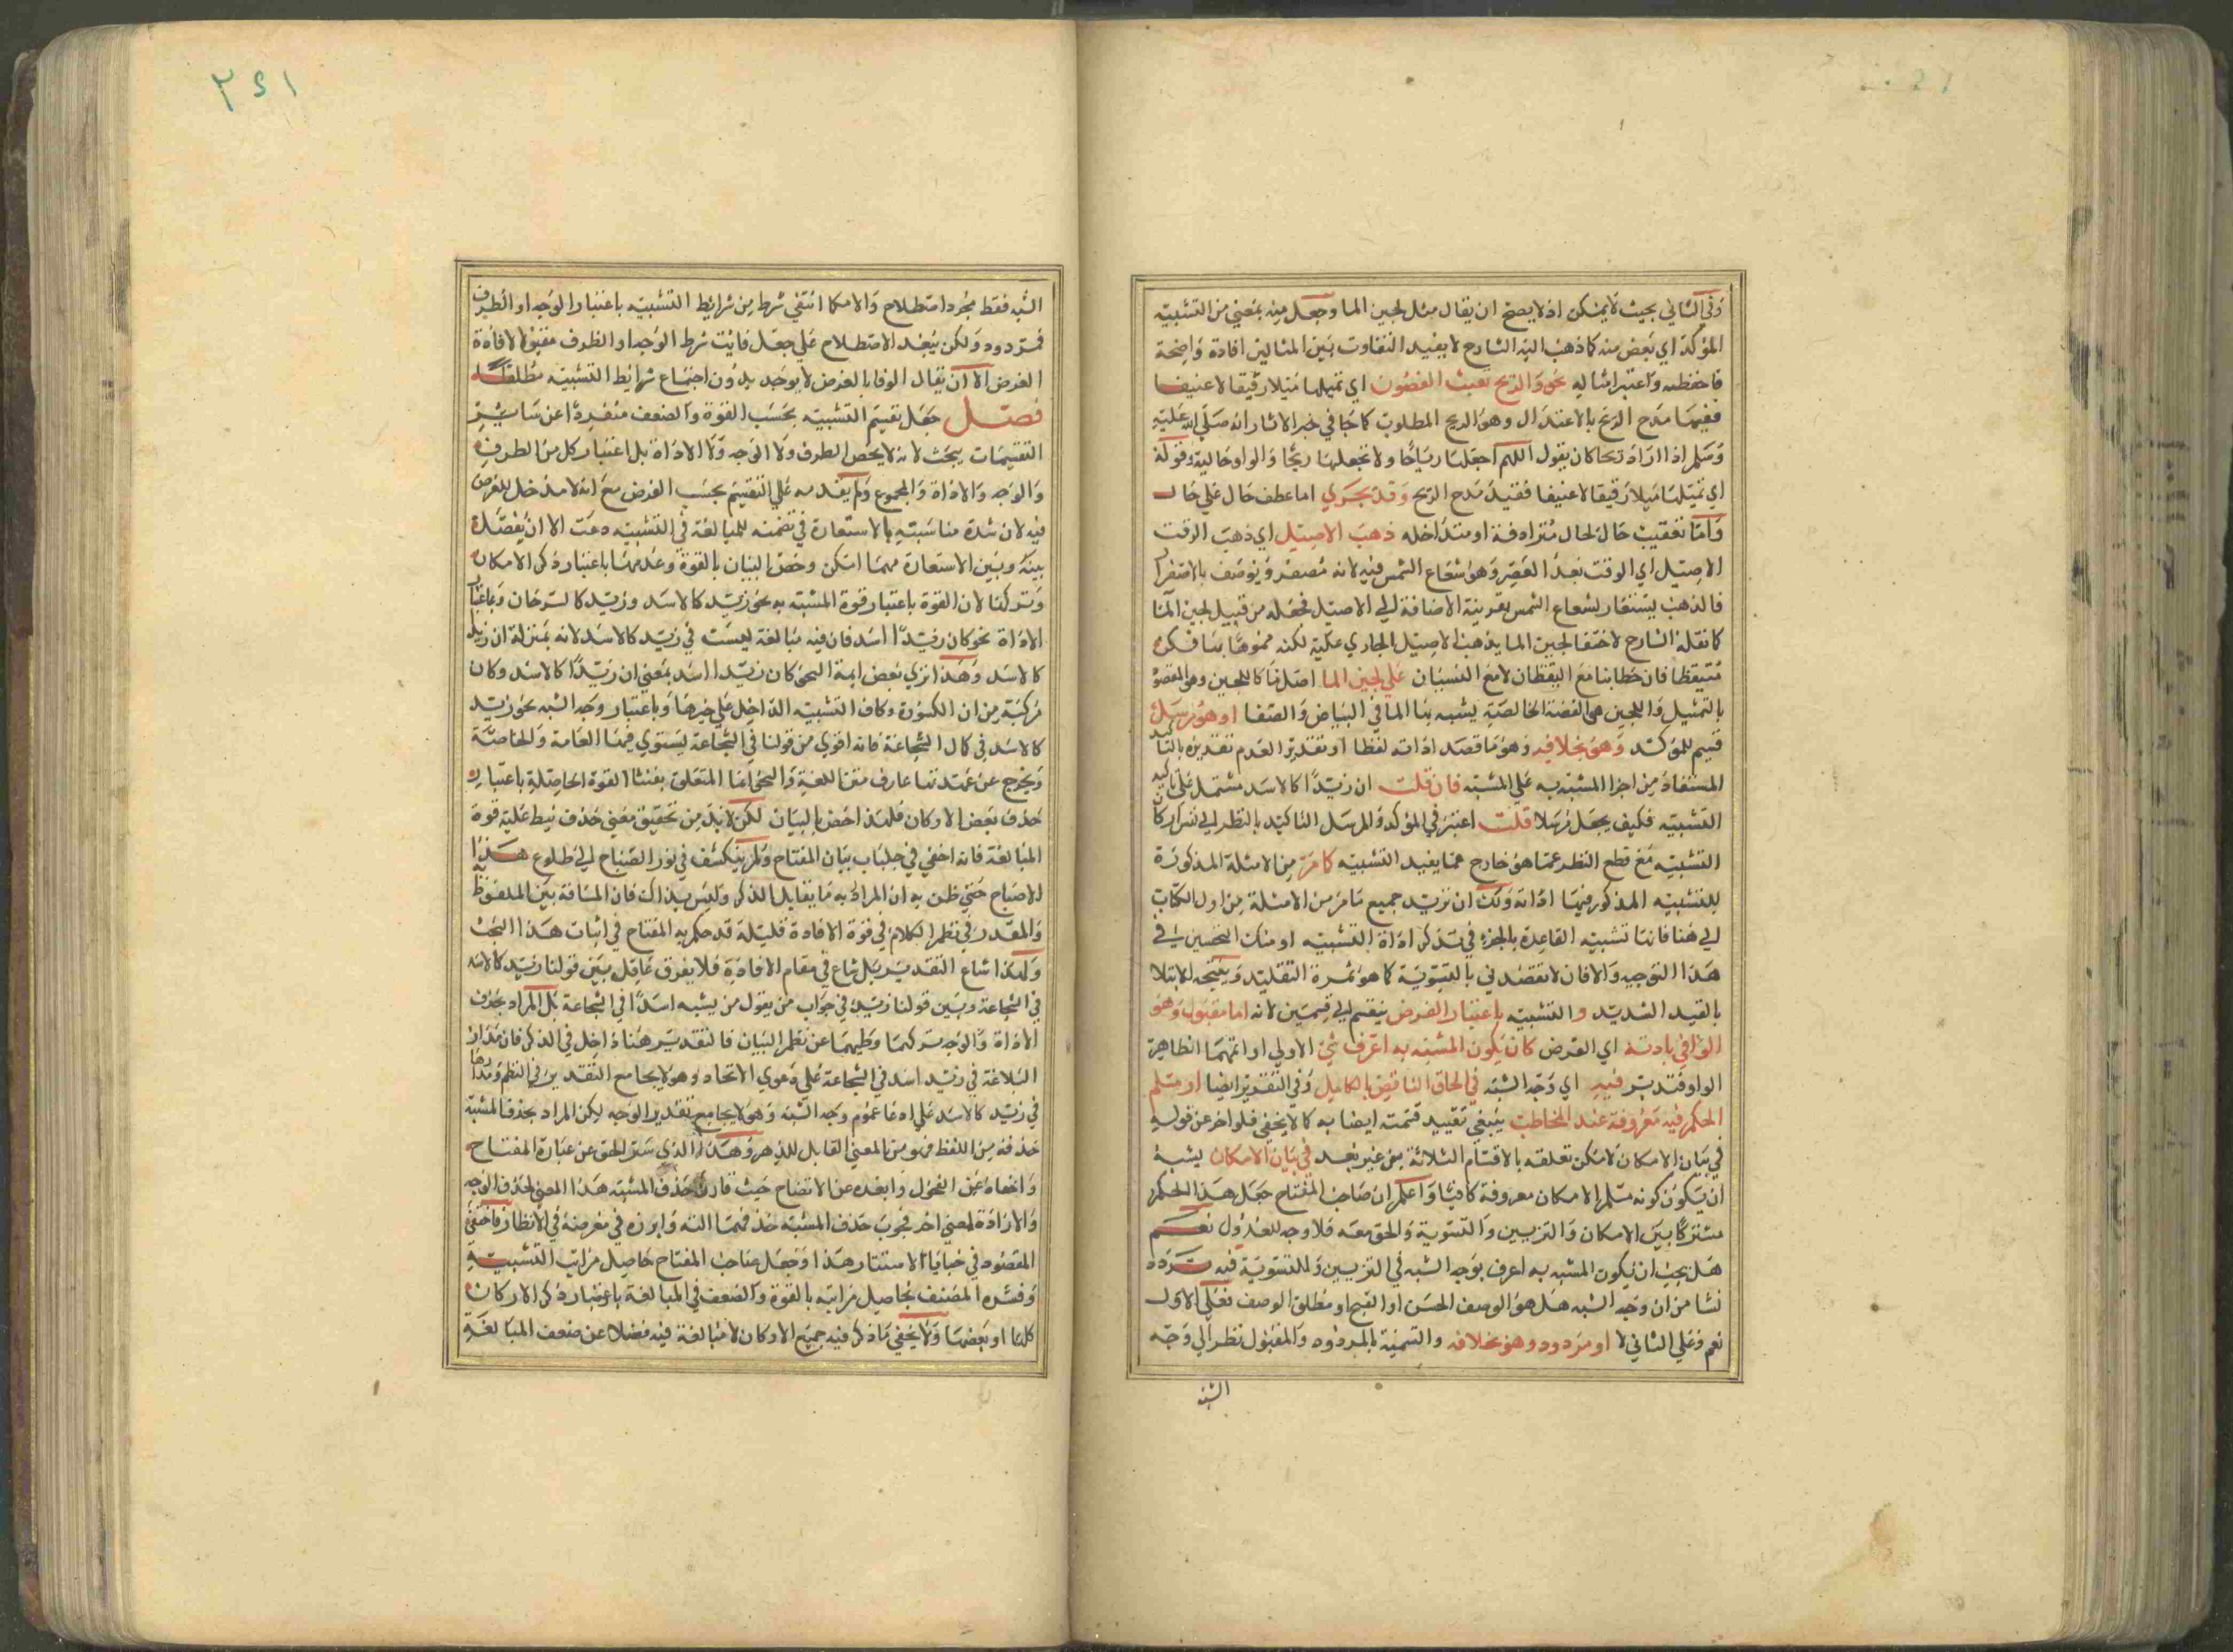 وفي الثاني بحيث لا يمكن اذ لا يصح ان يقال مثل لجين الما وجعل منه بمعني من التشبيه
المؤكد اي بعض منه كما ذهب اليه الشارح لا يفيد التفاوت بين المثالين افادة واضحة
فاحفظه واعتبر امثاله نحو والريح تعبث الغصون اي تميلها ميلا رقيقا لا عنيفا
ففيها مدح الريح بالاعتدال وهو الريح المطلوب كما جا في خبر الاثار انه صلي الله عليه
وسلم اذا اراد ريحا كان يقول اللهم اجعلها رياحا ولا تجعلها ريحا والواو حالية وقوله
اي تميلها ميلا رقيقا لا عنيفا فقيد مدح الريح وقد يجري اما عطف حال علي حال
واما تعقيب حال لحال مترادفة او متداخله ذهب الاصيل اي ذهب الوقت
الاصيل اي الوقت بعد العصر وهو شعاع الشمس فيه لانه مصفر ويوصف بالاصفرار
فالذهب يستعار لشعاع الشمس بقرينة الاضافة الي الاصيل فجعله من قبيل لجين الما
كما نقله الشارح لاختفا لجين الما بذهب الاصيل الجاري عليه لكنه مموها بنا فكره
متيقظا فان خطابنا مع اليقظان لا مع النسيان علي لجين الما اصله ما كاللجين وهو المقصود
بالتمثيل واللجين هي الفضة الخالصة يشبه بها الما في البياض والصفا او هو مرسل
قسيم للمؤكد وهو بخلافه وهو ما قصد اداته لفظا او تقدير العدم تقديره بالتاكيد
المستفاد من اجرا المشبه به علي المشبه فان قلت ان زيدا كالاسد مشتمل علي تاكيد
التشبيه فكيف يجعل مرسلا قلت اعتبر في المؤكد والمرسل التاكيد بالنظر الي نفس اركان
التشبيه مع قطع النظر عما هو خارج عما يفيد التشبيه كما مر من الامثلة المذكورة
للتشبيه المذكور فيها اداته ولك ان تريد جميع ما مر من الامثلة من اول الكتاب
الي هنا فانها تشبيه القاعدة بالجزء في تذكر اداة التشبيه او منك التحسين لي في
هذا التوجيه والا فان لا تقصدني بالتسوية كما هو ثمرة التقليد وينتجه الابتلا
بالقيد الشديد والتشبيه باعتبار الغرض ينقسم الي قسمين لانه اما مقبول وهو
الوافي بافادته اي الغرض كان يكون المشبه به اعرف شئ الاولي او اتمها الظاهرة
الواو فتدبر فيه اي وجه الشبه في الحاق الناقص بالكامل وفي التقدير ايضا او مسلم
الحكم فيه معروفة عند المخاطب ينبغي تقييد قسمته ايضا به كما لا يخفي فلو اخر عن قوله
في بيان الامكان لامكن تعلقه بالاقسام الثلاثة من غير بعد في بيان الامكان يشبه
ان يكون كونه مسلم الامكان معروفة كافيا واعلم ان صاحب المفتاح جعل هذا الحكم
مشتركا بين الامكان والتزيين والتسوية والحق معه فلا وجه للعدول نعم
هل يجب ان يكون المشبه به اعرف بوجه الشبه في التزيين وللتسوية فيه تردد
نشا من ان وجه الشبه هل هو الوصف الحسن او القبح او مطلق الوصف فعلي الاول
نعم وعلي الثاني لا او مردود وهو بخلافه والتسمية بالمردود والمقبول نظر الي وجه
الشبه
٣٤١
الشبه فقط مجرد اصطلاح والا كما انتفي شرط من شرايط التشبيه باعتبار الوجه او الطرف
فمردود ولكن يبعد الاصطلاح علي جعل فايت شرط الوجه او الطرف مقبولا لافادة
الغرض الا ان يقال الوفا بالغرض لا يوجد بدون اجتماع شرايط التشبيه مطلقا
فصل جعل تقسيم التشبيه بحسب القوة والضعف منفردا عن سائر
التقسيمات يبحث لانه لا يخص الطرف ولا الوجه ولا الاداة بل اعتبار كل من الطرف
والوجه والاداة والمجموع ولم يقدمه علي التقسيم بحسب الغرض مع انه لا مدخل للغرض
فيه لان شدة مناسبته بالاستعارة في تضمنه للمبالغة في التشبيه دعت الا ان يفصله
بينه وبين الاستعارة مهما امكن وخص البيان بالقوة وعدمها باعتبار ذكر الاركان
وتركها لان القوة باعتبار قوة المشبه به نحو زيد كالاسد وزيد كالسرحان وباعتبار
الاداة نحو كان زيدا اسد فان فيه مبالغة ليست في زيد كالاسد لانه بمنزلة ان زيدا
كالاسد وهذا نري بعض ايمة النحو كان زيدا اسد بمعني ان زيدا كالاسد وكان
مركبة من ان الكسورة وكاف التشبيه الداخل علي خبرها وباعتبار وجه الشبه نحو زيد
كالاسد في كمال الشجاعة فانه اقوي من قولنا في الشجاعة يستوي فيها العامة والخاصة
ويخرج عن عهدتها عارف متن اللغة والنحو انما المتعلق بفننا القوة الحاصلة باعتبار
حذف بعض الاركان فلهذا اخص بالبيان لكن لا بد من تحقيق معني حذف نيط عليه قوة
المبالغة فانه اخفي في جلباب بيان المفتاح ولم ينكشف في نور الصباح الي طلوع هذا
الاصباح حتي ظن به ان المراد به ما يقابل الذكر وليس بذاك فان المسافة بين الملفوظ به
والمقدر في نظم الكلام في قوة الافادة قليلة قد حكم به المفتاح في اثبات هذا البحث
ولهذا شاع التقدير بل شاع في مقام الافادة فلا يفرق عاقل بين قولنا زيد كالاسد
في الشجاعة وبين قولنا زيد في جواب من يقول من يشبه اسدا في الشجاعة بل المراد بحذف
الاداة والوجه تركهما وطيهما عن نظم البيان فالتقدير هنا داخل في الذكر فان مدار
البلاغة في زيد اسد في الشجاعة علي دعوي الاتحاد وهو لا يجامع التقدير في النظم ومدارها
في زيد كالاسد علي ادعا عموم وجه الشبه وهو لا يجامع تقدير الوجه لكن المراد بحذف المشبه
حذفه من اللفظ فهو من المعني القابل للذهر وهذا الذي ستر الحق عن عبارة المفتاح
واخفاه عن الفحول وابعده عن الاتضاح حيث قارن حذف المشبه هذا المعني لحذف الوجه
والاداة لمعني اخر فجوب حذف المشبه حذفهما اليه وابرزه في معرضه في الانظار فاختفي
المقصود في خبايا الاستتار هذا وجعل صاحب المفتاح حاصل مراتب التشبيه
وفسره المصنف بحاصل مراتبه بالقوة والضعف في المبالغة باعتبار ذكر الاركان
كلها او بعضها ولا يخفي ما ذكر فيه جميع الاركان لا مبالغة فيه فضلا عن ضعف المبالغة